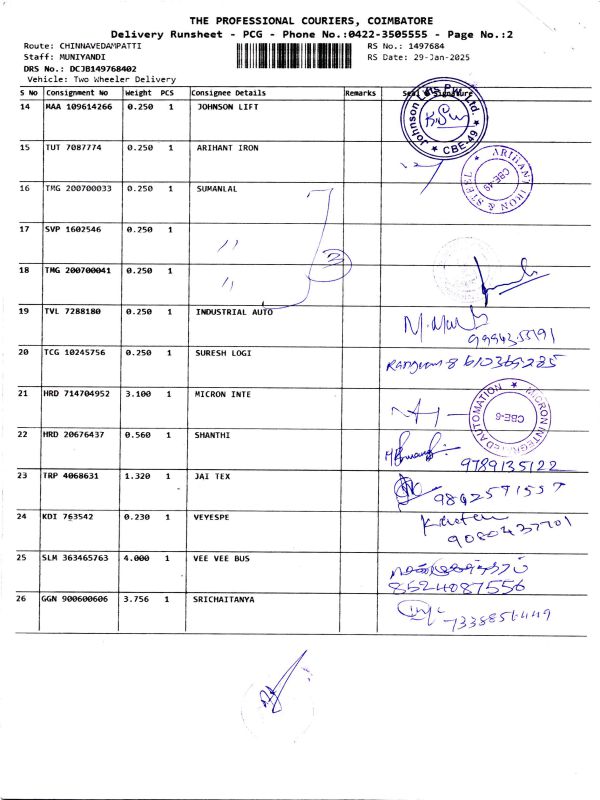 THE PROFESSIONAL COURIERS, COIMBATORE
Delivery Runsheet - PCG - Phone No.:0422-3505555 - Page No.:2
Route: CHINNAVEDAMPATTI RS No.: 1497684
Staff: MUNIYANDI RS Date: 29-Jan-2025
DRS No.: DCJB149768402
Vehicle: Two Wheeler Delivery
S No Consignment No Weight PCS Consignee Details Remarks Seal & Signature
14 MAA 109614266 0.250 1 JOHNSON LIFT
Johnson Lifts Pvt. Ltd. ★ CBE-49 ★
15 TUT 7087774 0.250 1 ARIHANT IRON
ARIHANT IRON & STEEL ★ CBE-49
16 TMG 200700033 0.250 1 SUMANLAL
17 SVP 1602546 0.250 1 "
18 TMG 200700041 0.250 1 "
3
19 TVL 7288180 0.250 1 INDUSTRIAL AUTO
20 TCG 10245756 0.250 1 SURESH LOGI 8610365285
21 HRD 714704952 3.100 1 MICRON INTE
★ MICRON INTEGRATED AUTOMATION CBE-6
22 HRD 20676437 0.560 1 SHANTHI
9789135122
23 TRP 4068631 1.320 1 JAI TEX
9842591557
24 KDI 763542 0.230 1 VEYESPE
25 SLM 363465763 4.000 1 VEE VEE BUS
8524087556
26 GGN 900600606 3.756 1 SRICHAITANYA
7338851449